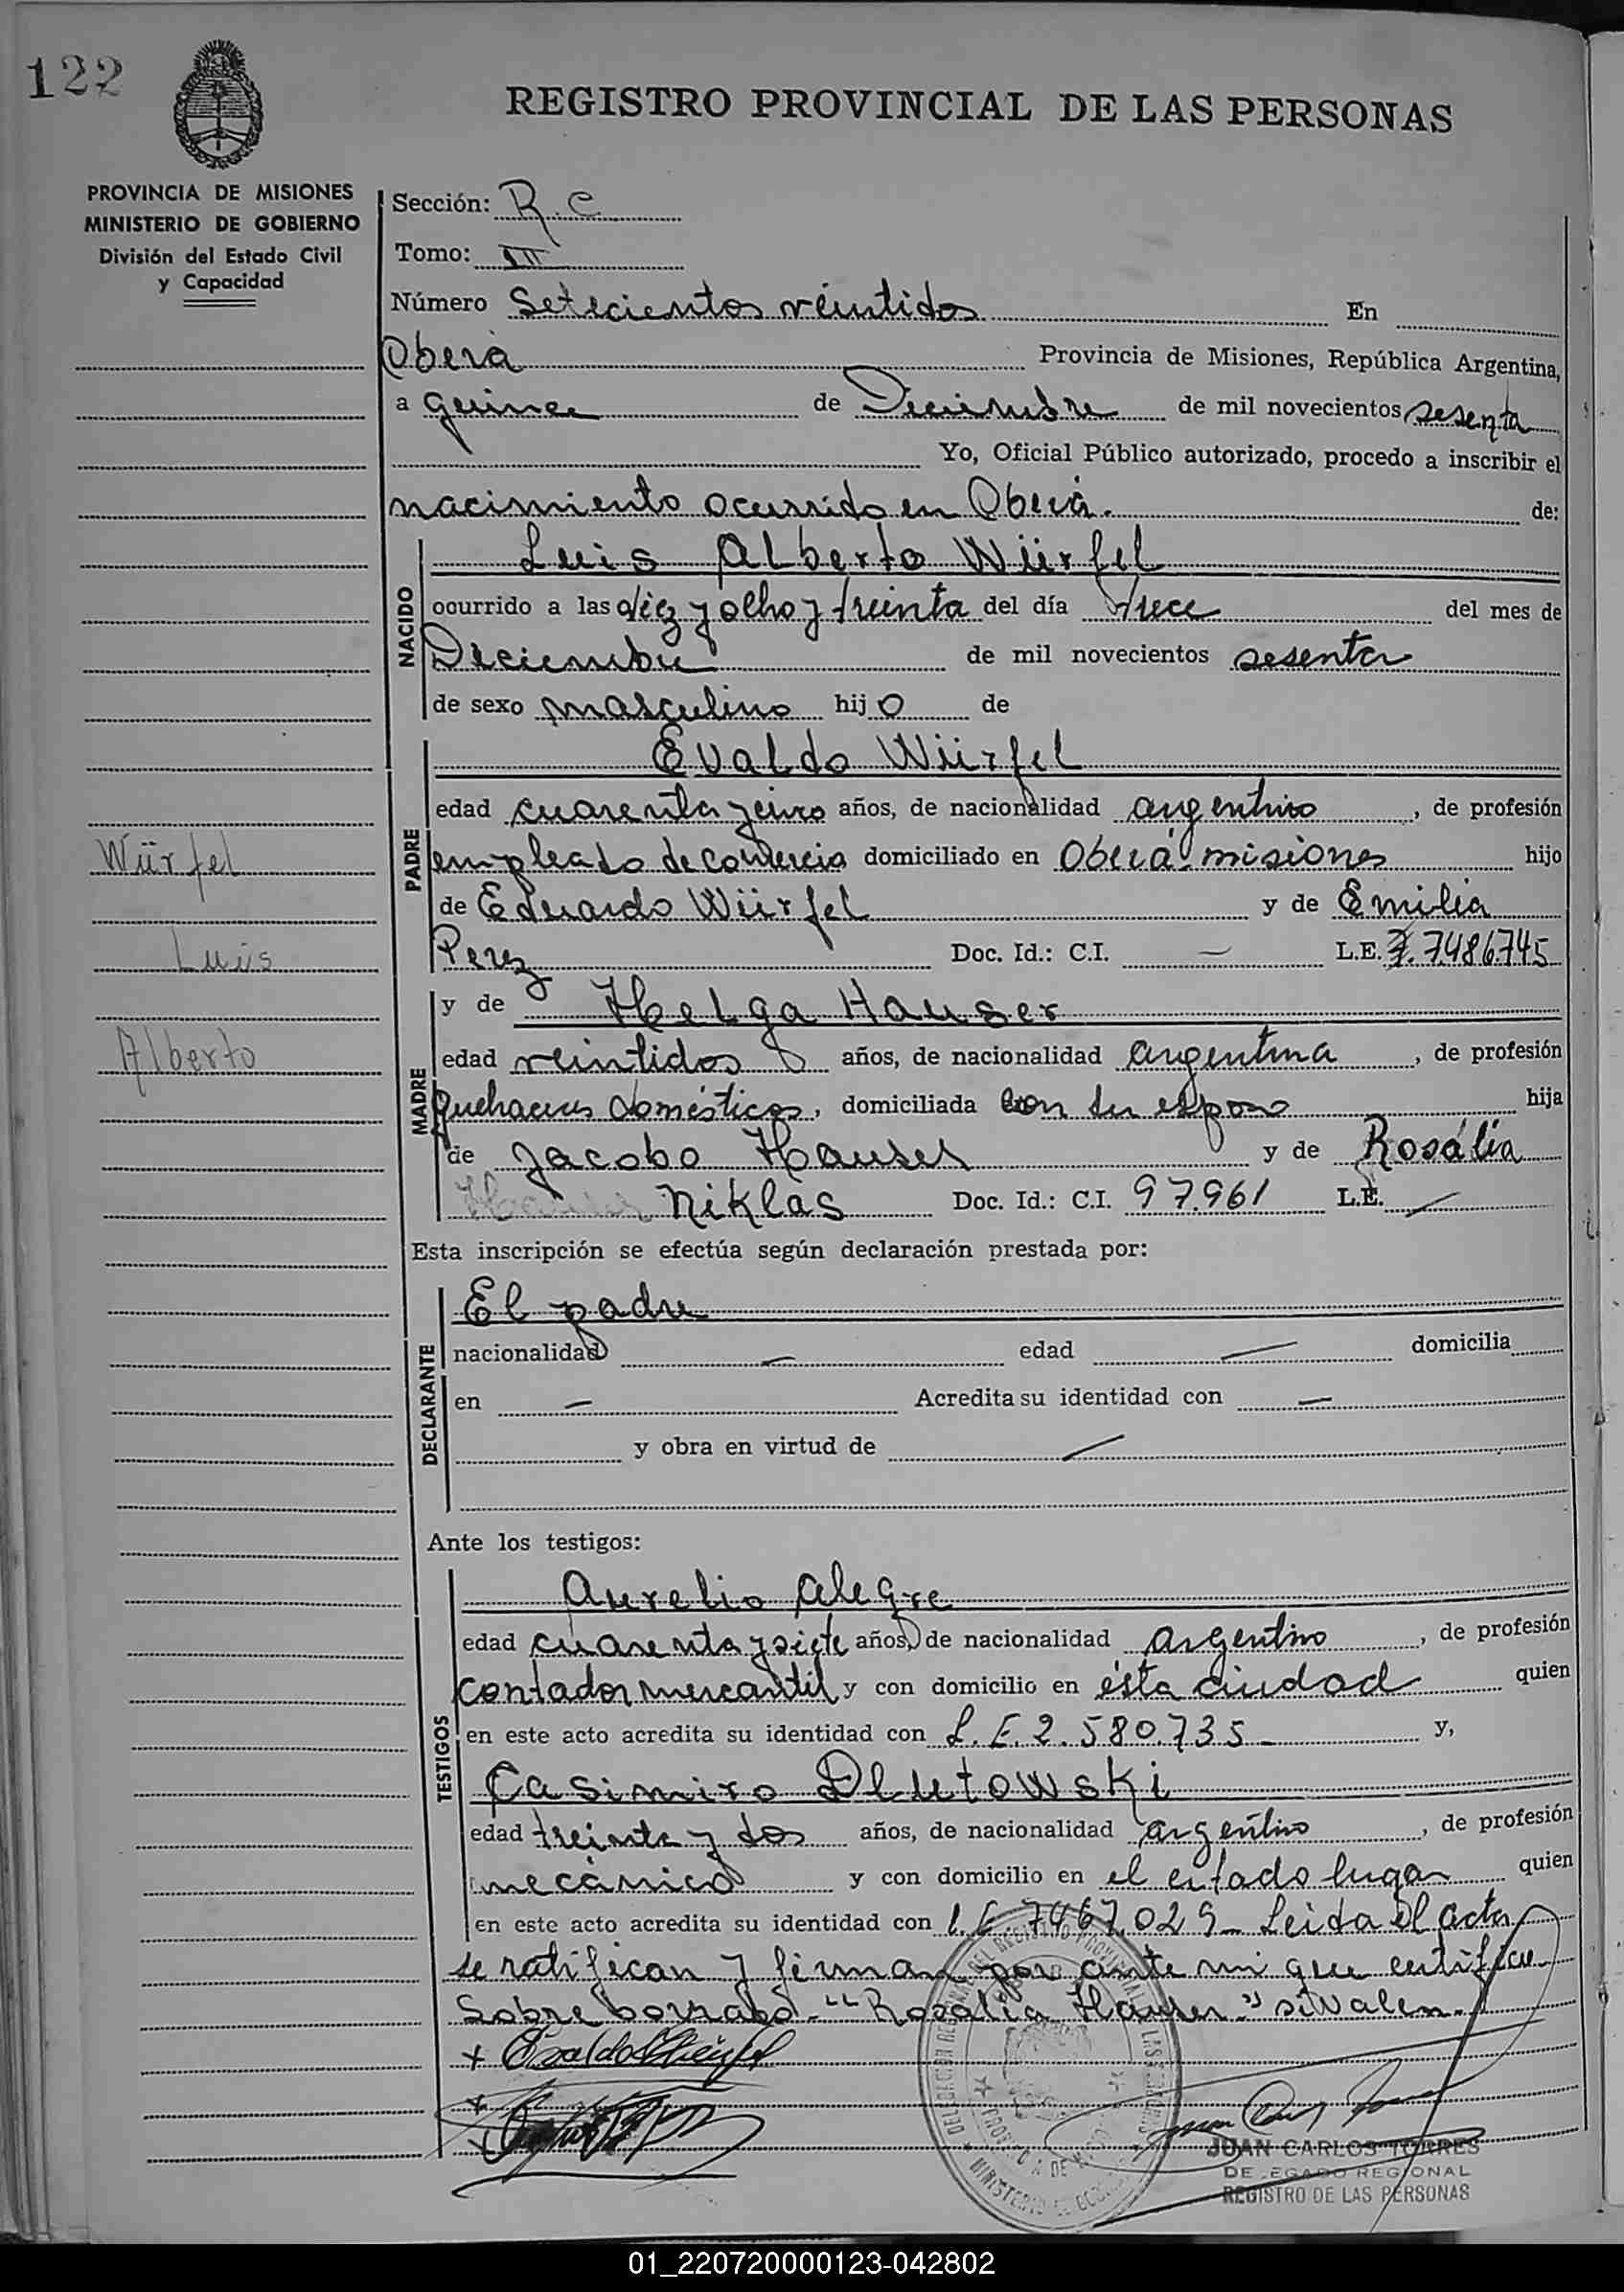 122
REGISTRO PROVINCIAL DE LAS PERSONAS
PROVINCIA DE MISIONES
MINISTERIO DE GOBIERNO
División del Estado Civil
y Capacidad
Sección: R.C
Tomo: III
Número Setecientos veintidos En
Oberá Provincia de Misiones, República Argentina,
a quince de Diciembre de mil novecientos sesenta
Yo, Oficial Público autorizado, procedo a inscribir el
nacimiento ocurrido en Oberá. de:
NACIDO
Luis Alberto Würfel
ocurrido a las diez y ocho y treinta del día trece del mes de
Diciembre de mil novecientos sesenta
de sexo masculino hijo de
PADRE
Evaldo Würfel
edad cuarenta y cinco años, de nacionalidad argentino, de profesión
empleado de comercio domiciliado en Oberá misiones hijo
de Eduardo Würfel y de Emilia
Perez Doc. Id.: C.I. — L.E. 7.7486.745
Würfel
Luis
Alberto
MADRE
y de Helga Hauser
edad veintidos años, de nacionalidad argentina, de profesión
quehaceres domésticos, domiciliada con su esposo hija
de Jacobo Hauser y de Rosalía
Niklas Doc. Id.: C.I. 97.961 L.E. —
Esta inscripción se efectúa según declaración prestada por:
DECLARANTE
El padre
nacionalidad — edad — domicilia
en — Acredita su identidad con —
y obra en virtud de —
Ante los testigos:
TESTIGOS
Aurelio Alegre
edad cuarenta y siete años, de nacionalidad argentino, de profesión
contador mercantil y con domicilio en ésta ciudad quien
en este acto acredita su identidad con L.E. 2.580.735 y,
Casimiro
edad treinta y dos años, de nacionalidad argentino, de profesión
mecánico y con domicilio en el citado lugar quien
en este acto acredita su identidad con L.E. 7467.029 Leida el acta
se ratifican y firman por ante mi que certifico
Sobre borrado - "Rosalía Hauser" si Valen.
JUAN CARLOS TORRES
DELEGADO REGIONAL
REGISTRO DE LAS PERSONAS
01_220720000123-042802